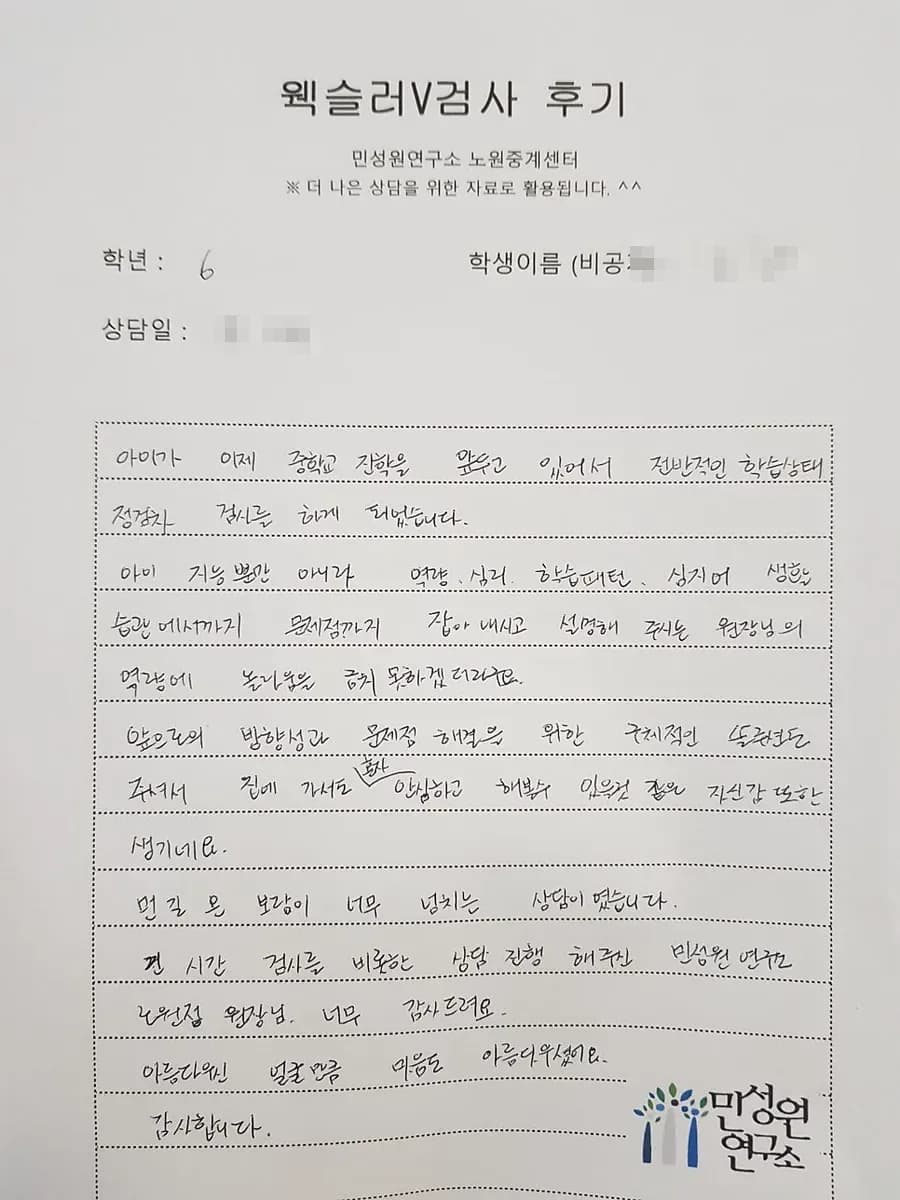 웩슬러V검사 후기
민성원연구소 노원중계센터
※ 더 나은 상담을 위한 자료로 활용됩니다. ^^
학년 : 6
학생이름 (비공
상담일 :
아이가 이제 중학교 진학을 앞두고 있어서 전반적인 학습상태
점검차 검사를 하게 되었습니다.
아이 지능뿐만 아니라 역량, 심리, 학습패턴, 심지어 생활
습관에서까지 문제점까지 잡아 내시고 설명해 주시는 원장님의
역량에 놀라움을 금치 못하겠더라구요.
앞으로의 방향성과 문제점 해결을 위한 구체적인 솔루션도
주셔서 집에 가서도 혼자 안심하고 해볼수 있을것 같은 자신감 또한
생기네요.
먼 길 온 보람이 너무 넘치는 상담이였습니다.
긴 시간 검사를 비롯한 상담 진행 해주신 민성원 연구소
노원점 원장님. 너무 감사드려요.
아름다우신 얼굴만큼 마음도 아름다우셨어요.
감사합니다.
민성원
연구소